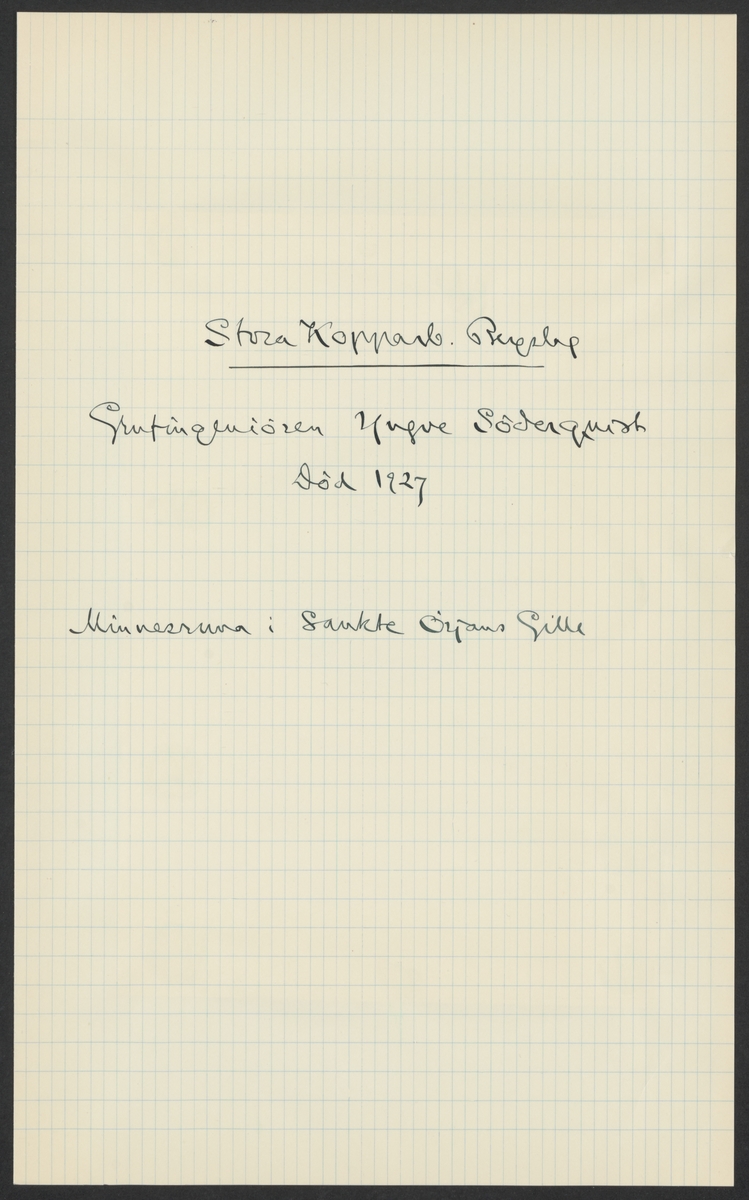 Stora Kopparb. Bergslag
Grufingeniören Yngve Söderqvist
Död 1927
Minnesruna i Sankte Örjans Gille